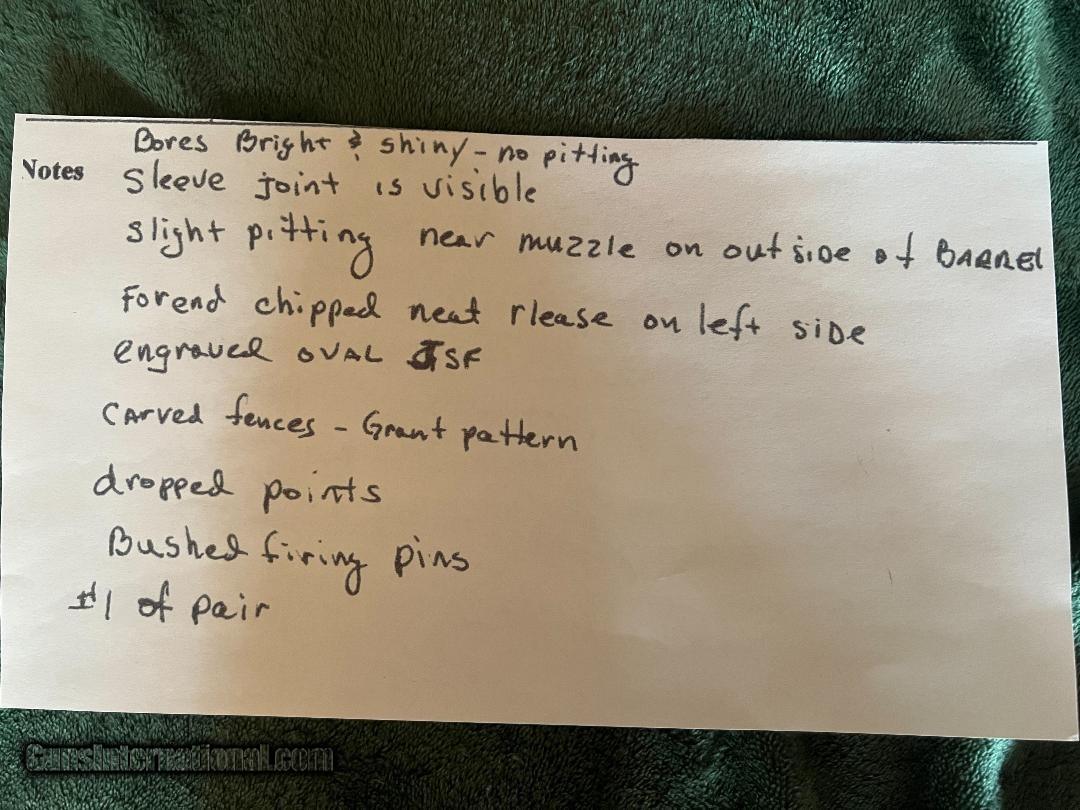 Bores Bright & shiny - no pitting
Notes
Sleeve joint is visible
slight pitting near muzzle on outside of BARREl
Forend chipped neat rlease on left side
engraved OVAL JSF
CArved fences - Grant pattern
dropped points
Bushed firing pins
#1 of pair
GunsInternational.com